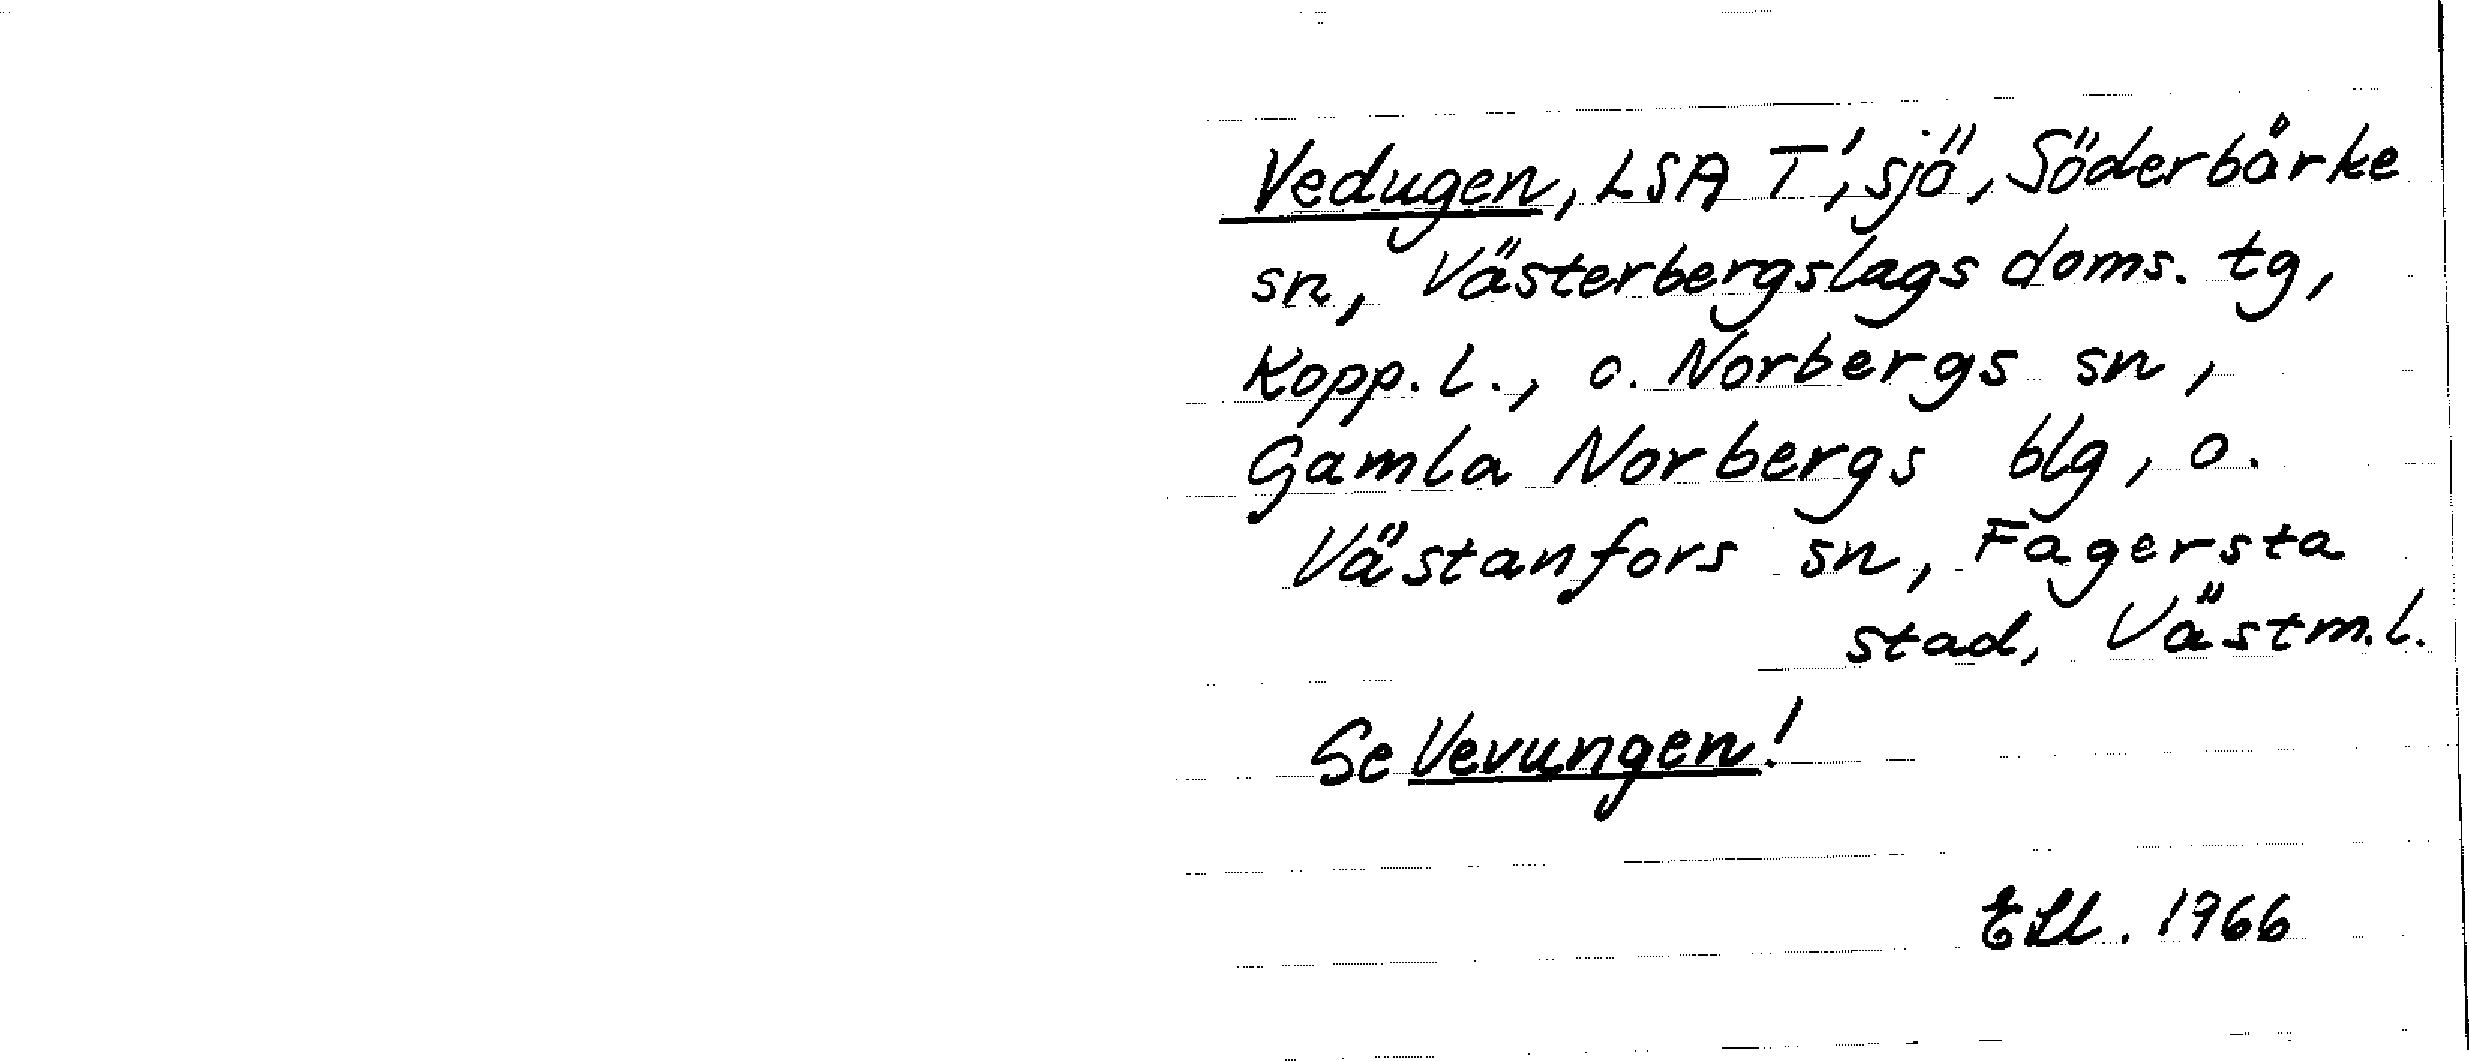 Vedugen, LSA T', sjö, Söderbårke
sn, Västerbergslags doms. tg,
Kopp. l., o. Norbergs sn,
Gamla Norbergs blg, o.
Västanfors sn, Fagersta
stad, Västm. l.
Se Vevungen!
1966